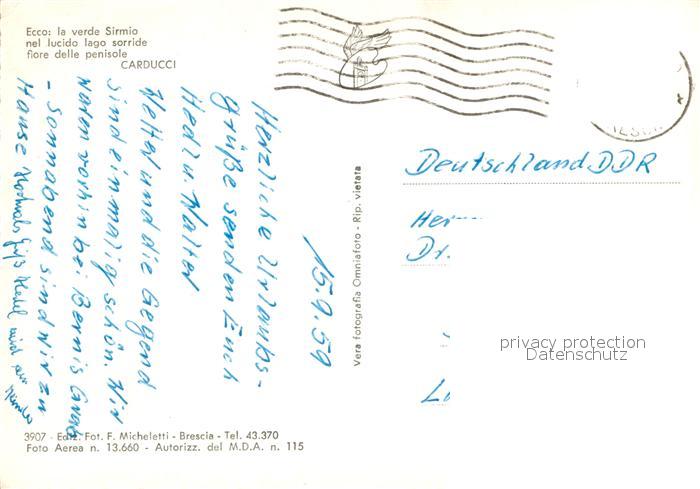 Ecco: la verde Sirmio
nel lucido lago sorride
fiore delle penisole
CARDUCCI
15.9.59
Herzliche Urlaubs-
grüße senden Euch
Hedl u. Walter
Wetter und die Gegend
sind einmalig schön. Wir
waren vorhin bei Bernis Grab
- Sonnabend sind wir zu
Hause
Vera fotografia Omniafoto - Rip. vietata
Deutschland DDR
Her
Dr.
privacy protection
Datenschutz
3907 - Ediz. Fot. F. Micheletti - Brescia - Tel. 43.370
Foto Aerea n. 13.660 - Autorizz. del M.D.A. n. 115